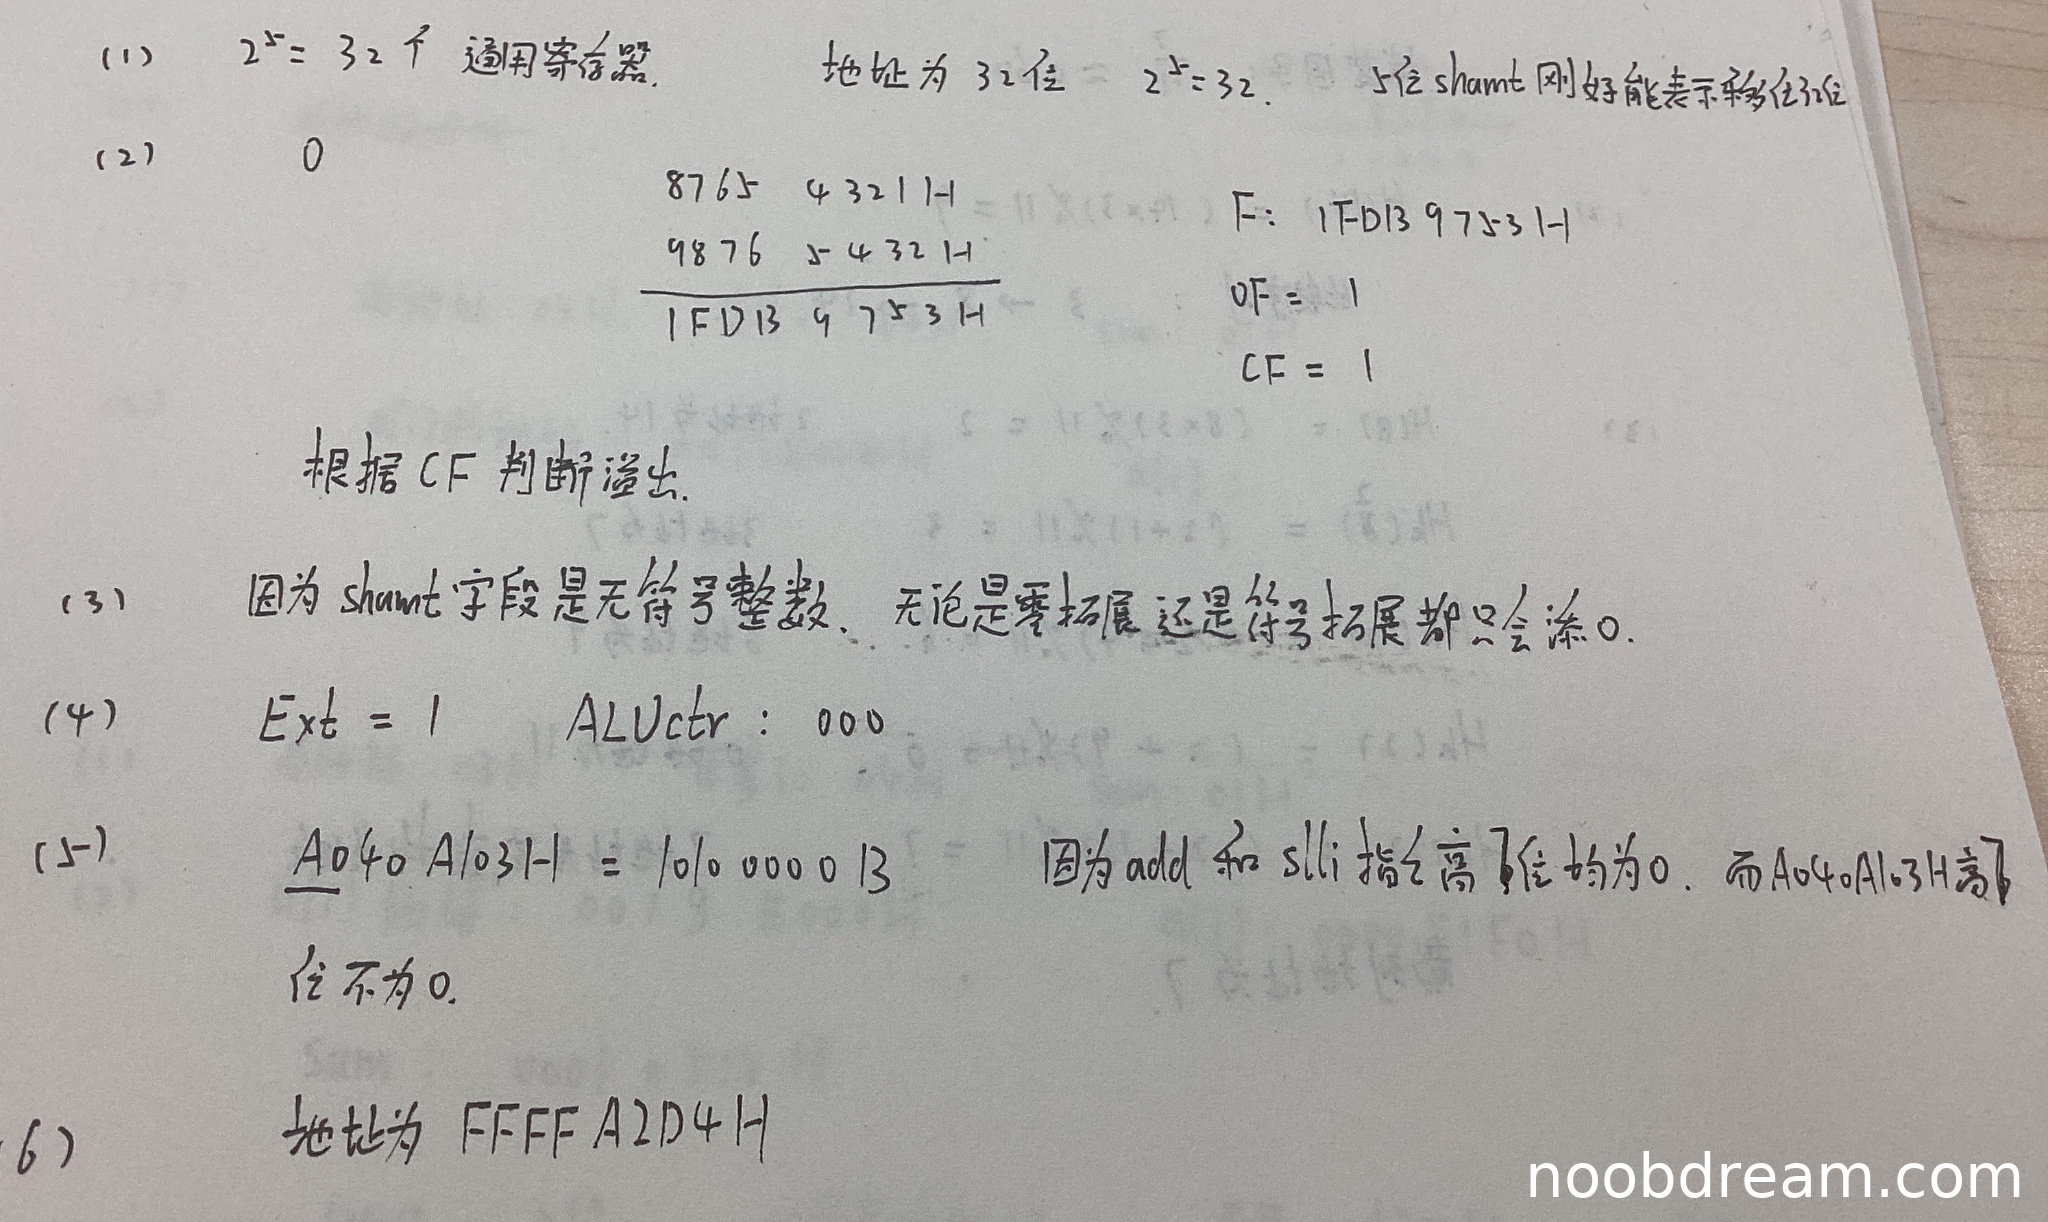 (1) 2⁵ = 32个 通用寄存器. 地址为 32位 2⁵=32. 5位shamt刚好能表示移位32位
(2) 0
8765 4321H
9876 5432H
1FDB 9753H
F: 1FDB9753H
OF = 1
CF = 1
根据CF判断溢出.
(3) 因为shamt字段是无符号整数. 无论是零拓展还是符号拓展都只会添0.
(4) Ext = 1 ALUctr: 000
(5) A040A103H = 1010 000 0B 因为add和slli指令高7位均为0. 而A040A103H高7
位不为0.
6) 地址为 FFFFA2D4H
noobdream.com